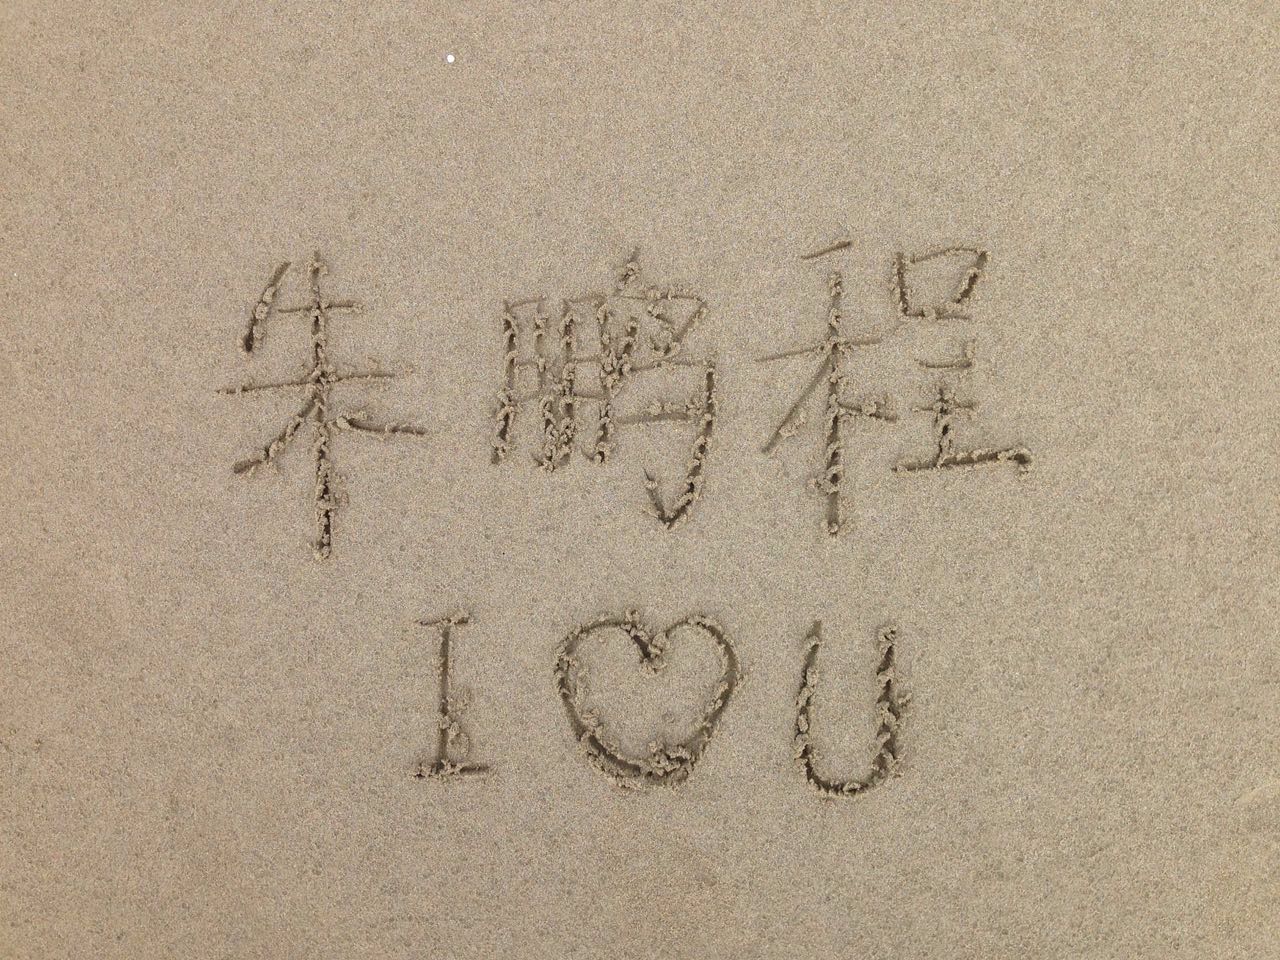 朱鹏程
I ♡ U